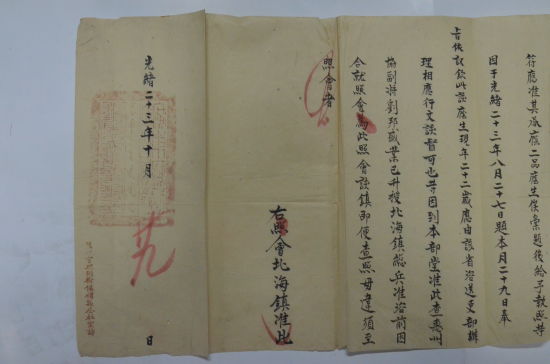 符應准其承廕二品廕生俟彙題後給予執照等
因于光緒二十三年八月二十七日題本月二十九日奉
旨依議欽此該廕生現年二十二歲應由該省咨送吏部辦
理相應行文該督可也等因到本部堂准此查惠州
協副將劉邦盛業已升授北海鎮總兵准咨前因
合就照會為此照會該鎮即便查照毋違須至
照會者
右照會北海鎮准此
光緒二十三年十月
廿九
日